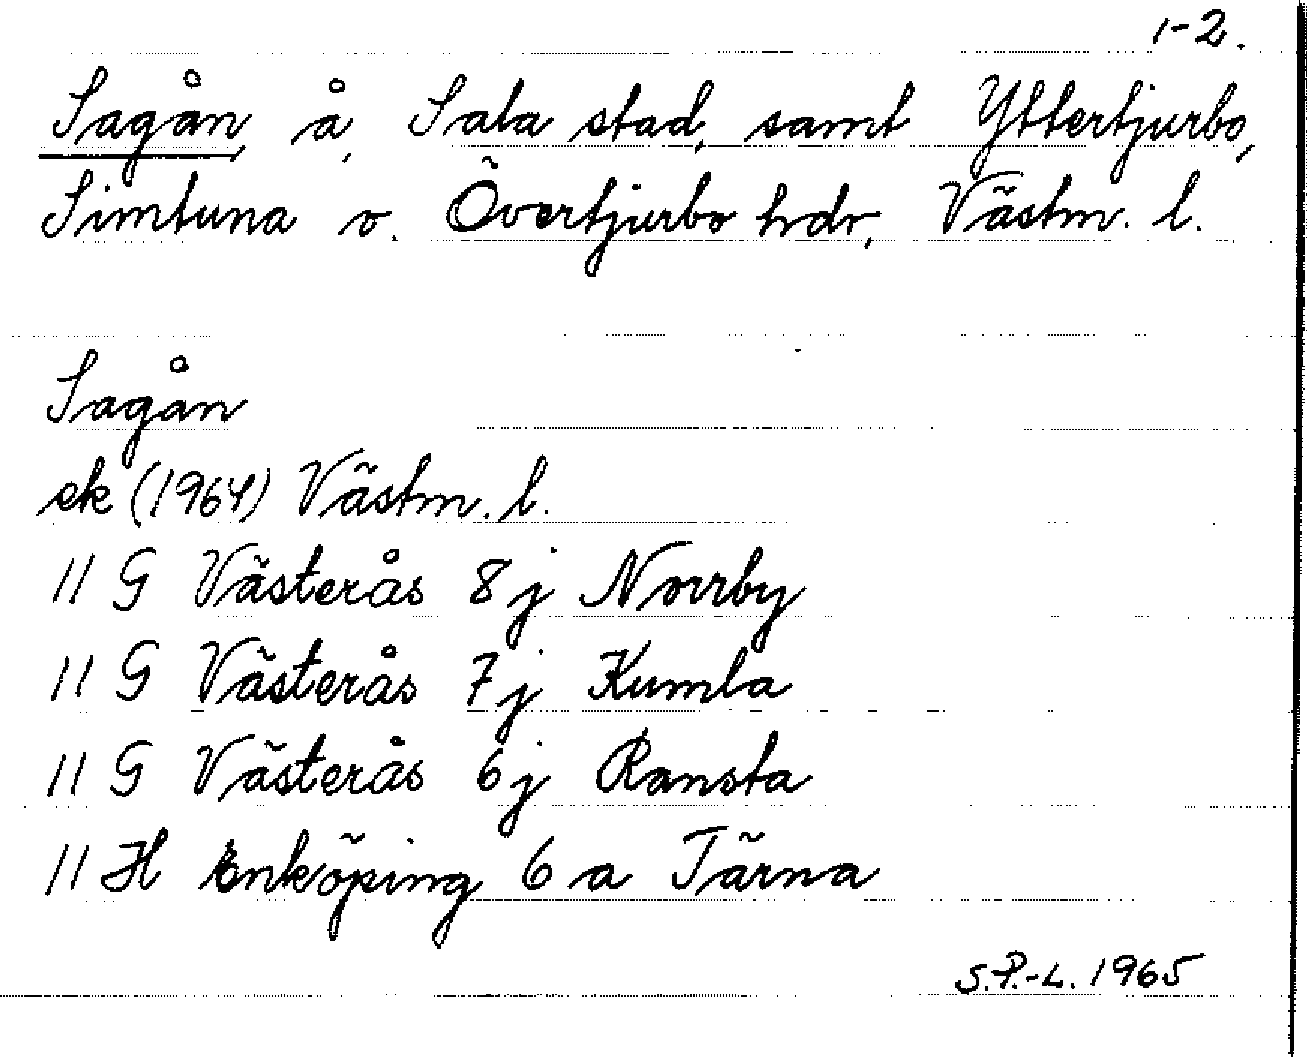 1-2.
Sagån, å, Sala stad, samt Yttertjurbo,
Simtuna o. Övertjurbo hdr, Västm. l.
Sagån
ek (1964) Västm. l.
11 G Västerås 8 j Norrby
11 G Västerås 7 j Kumla
11 G Västerås 6 j Ransta
11 H Enköping 6 a Tärna
S.P.-L. 1965